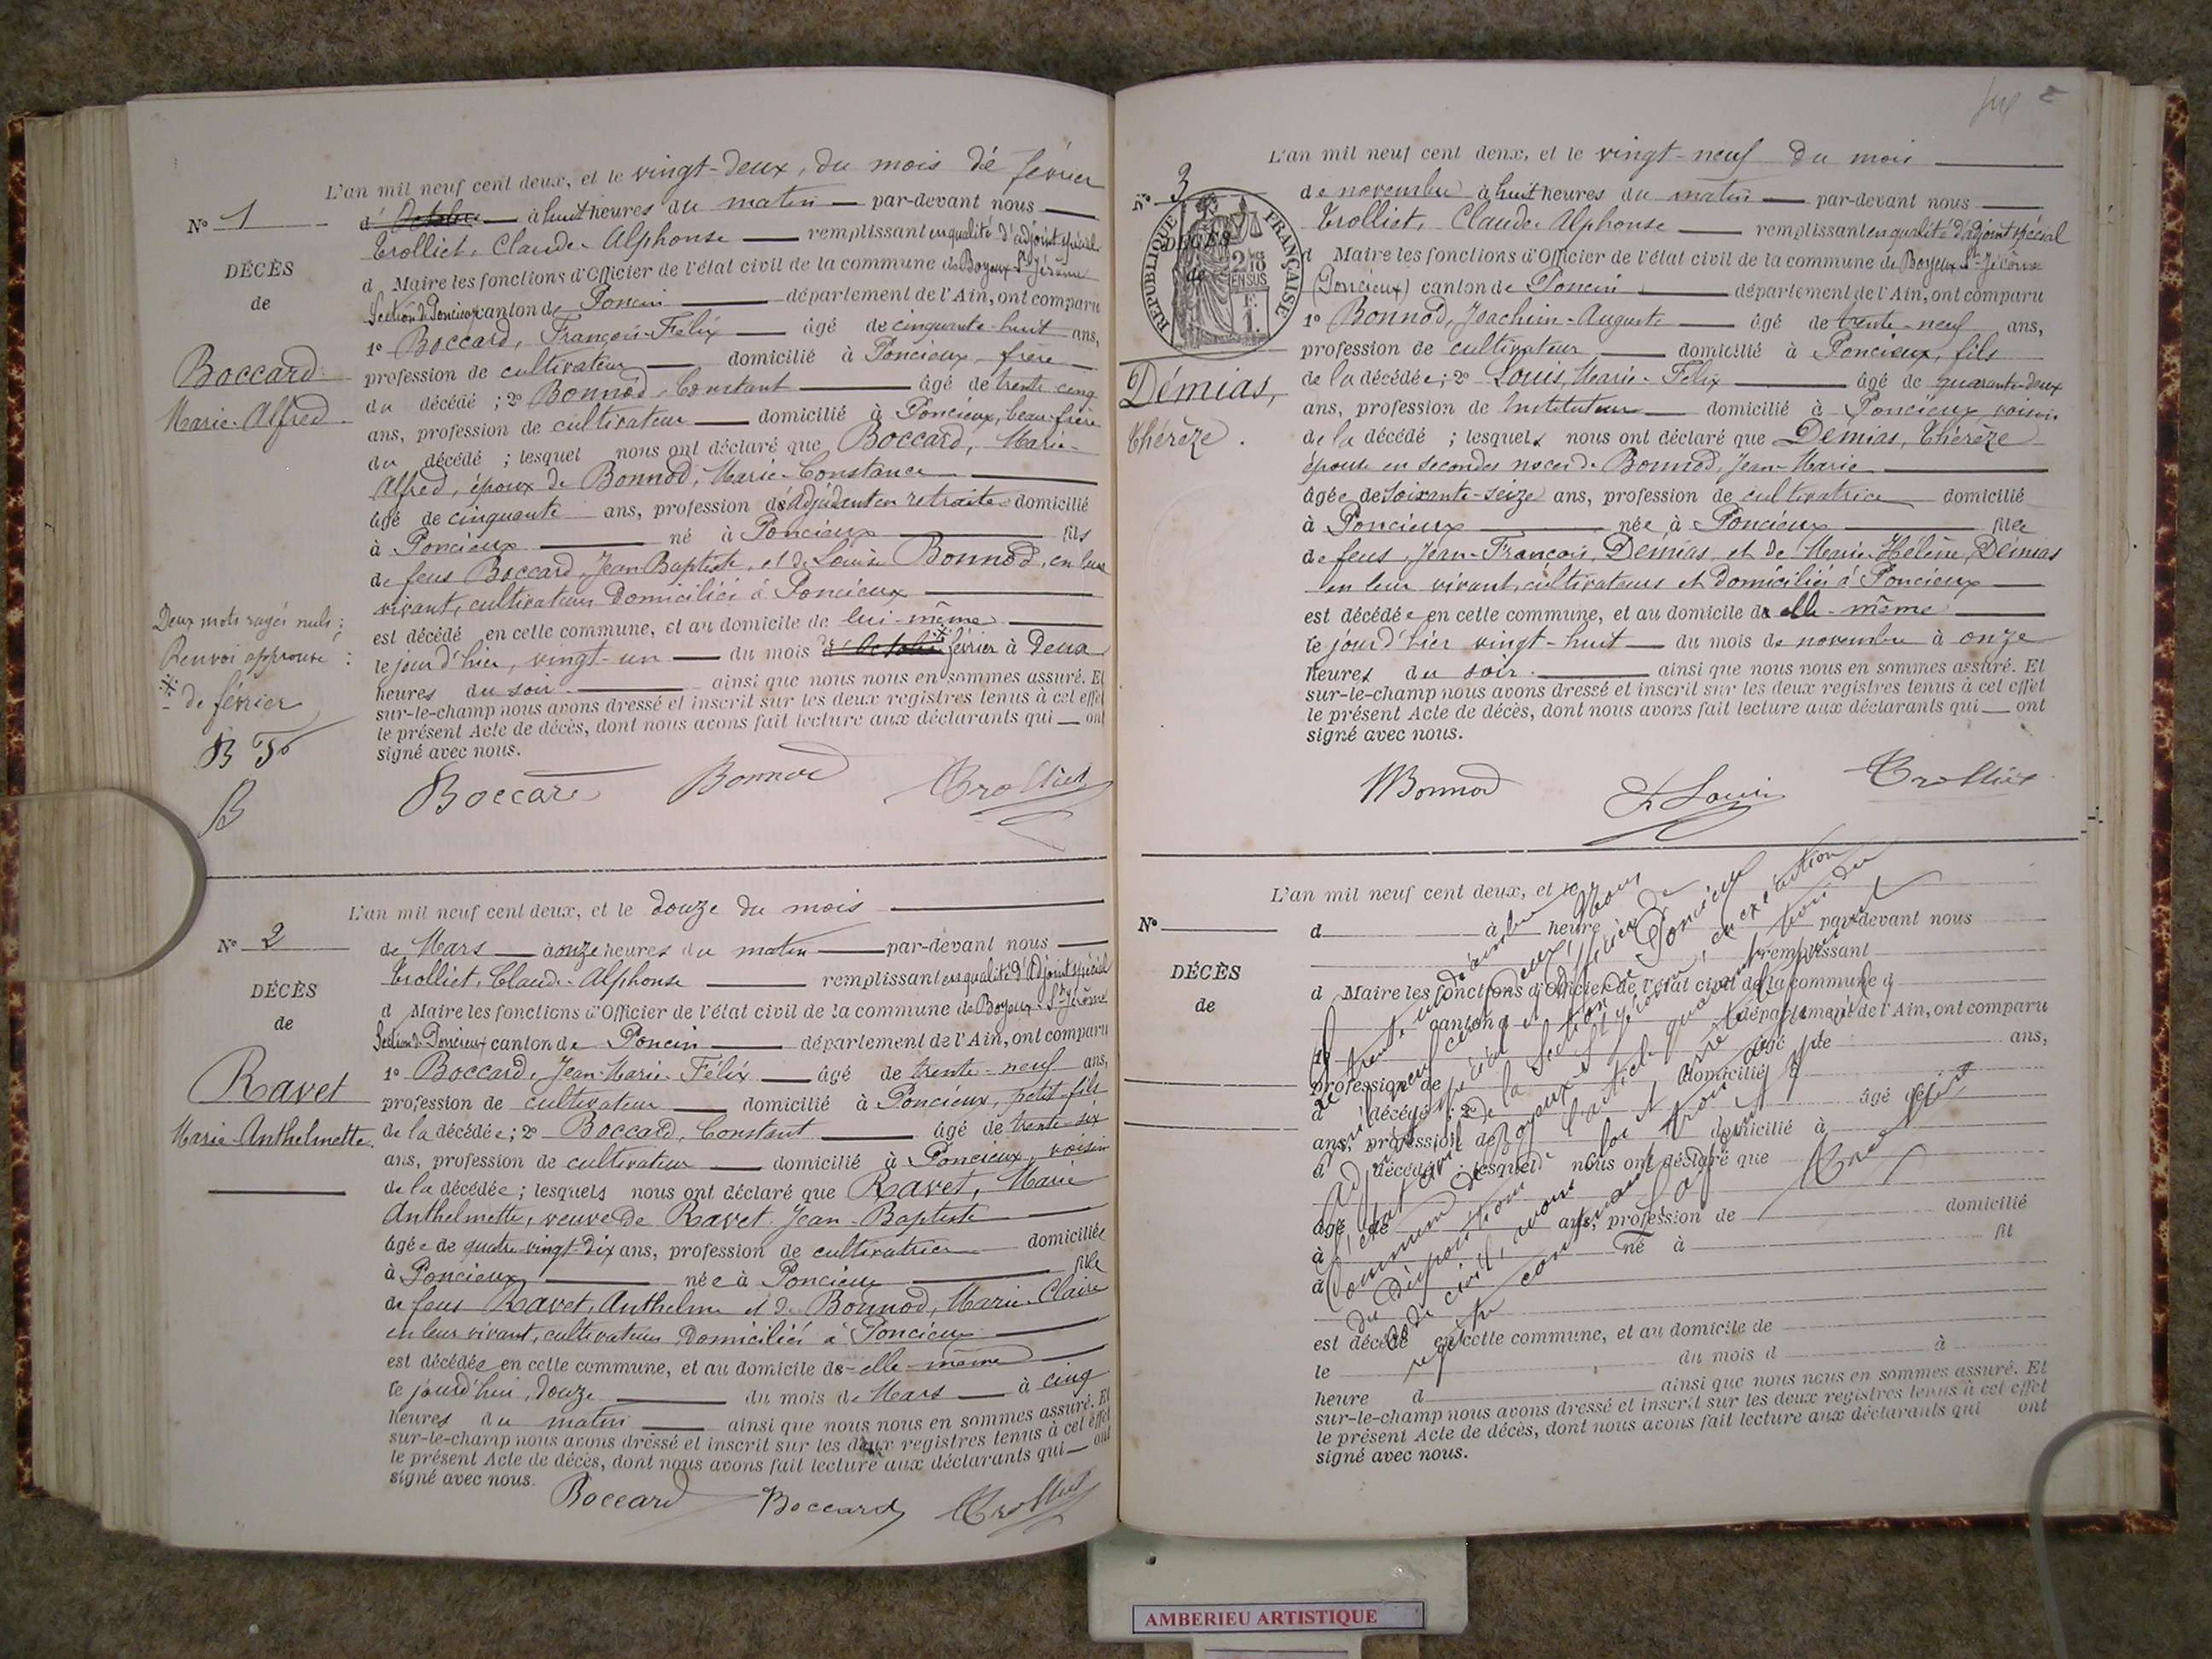 L'an mil neuf cent deux, et le vingt-deux, du mois de février
N° 1
d' Octobre à huit heures du matin par-devant nous
Trolliet, Claude-Alphonse remplissant en qualité d'adjoint spécial
DÉCÈS
de
d Maire les fonctions d'Officier de l'état civil de la commune de Boyeux-St-Jérôme
Section de Poncieux canton de Poncin département de l'Ain, ont comparu
1° Boccard, François-Félix âgé de cinquante-huit ans,
Boccard
Marie-Alfred
profession de cultivateur domicilié à Poncieux, frère
du décédé ; 2° Bonnod, Constant âgé de trente cinq
ans, profession de cultivateur domicilié à Poncieux, beau-frère
du décédé ; lesquel nous ont déclaré que Boccard, Marie-
Alfred, époux de Bonnod, Marie-Constance
âgé de cinquante ans, profession d'adjudant en retraite domicilié
à Poncieux né à Poncieux fils
de feus Boccard, Jean Baptiste, et de Louise Bonnod, en leur
vivant, cultivateurs domiciliés à Poncieux
est décédé en cette commune, et au domicile de lui-même
le jour d'hier, vingt-un du mois d'Octobre février à Deux
heures du soir ainsi que nous nous en sommes assuré. Et
sur-le-champ nous avons dressé et inscrit sur les deux registres tenus à cet effet
le présent Acte de décès, dont nous avons fait lecture aux déclarants qui ont
signé avec nous.
Deux mots rayés nuls ;
Renvoi approuvé :
de février
B
Boccard Bonnod Trolliet
L'an mil neuf cent deux, et le douze du mois
N° 2
de Mars à onze heures du matin par-devant nous
Trolliet, Claude-Alphonse remplissant en qualité d'Adjoint spécial
DÉCÈS
de
d Maire les fonctions d'Officier de l'état civil de la commune de Boyeux-St-Jérôme
Section de Poncieux canton de Poncin département de l'Ain, ont comparu
1° Boccard, Jean-Marie-Félix âgé de trente-neuf ans,
Ravet
Marie-Anthelmette
profession de cultivateur domicilié à Poncieux, petit-fils
de la décédée ; 2° Boccard, Constant âgé de trente-six
ans, profession de cultivateur domicilié à Poncieux, voisin
de la décédée ; lesquels nous ont déclaré que Ravet, Marie
Anthelmette, veuve de Ravet Jean-Baptiste
âgée de quatre-vingt-dix ans, profession de cultivatrice domiciliée
à Poncieux née à Poncieux fille
de feus Ravet, Anthelme et de Bonnod, Marie-Claire
en leur vivant, cultivateurs domiciliés à Poncieux
est décédée en cette commune, et au domicile de elle-même
le jourd'hui, douze du mois de Mars à cinq
heures du matin ainsi que nous nous en sommes assuré. Et
sur-le-champ nous avons dressé et inscrit sur les deux registres tenus à cet effet
le présent Acte de décès, dont nous avons fait lecture aux déclarants qui ont
signé avec nous.
Boccard Boccard Trolliet
L'an mil neuf cent deux, et le vingt-neuf du mois
N° 3
de novembre à huit heures du matin par-devant nous
Trolliet, Claude-Alphonse remplissant en qualité d'adjoint spécial
DÉCÈS
de
RÉPUBLIQUE FRANÇAISE
2/10
EN SUS
F.
1.
d Maire les fonctions d'Officier de l'état civil de la commune de Boyeux-St-Jérôme
(Poncieux) canton de Poncin département de l'Ain, ont comparu
1° Bonnod, Joachim-Auguste âgé de trente-neuf ans,
profession de cultivateur domicilié à Poncieux, fils
Démias,
Thérèze.
de la décédée ; 2° Louis, Marie-Félix âgé de quarante-deux
ans, profession de Instituteur domicilié à Poncieux voisin
de la décédé ; lesquels nous ont déclaré que Démias, Thérèze
épouse en secondes noces de Bonnod, Jean-Marie
âgée de soixante-seize ans, profession de cultivatrice domicilié
à Poncieux née à Poncieux fille
de feus Jean-François Démias et de Marie-Hélène Démias
en leur vivant, cultivateurs et domiciliés à Poncieux
est décédée en cette commune, et au domicile de elle-même
le jour d'hier vingt-huit du mois de novembre à onze
heures du soir. ainsi que nous nous en sommes assuré. Et
sur-le-champ nous avons dressé et inscrit sur les deux registres tenus à cet effet
le présent Acte de décès, dont nous avons fait lecture aux déclarants qui ont
signé avec nous.
Bonnod F Louis Trolliet
L'an mil neuf cent deux, et le
N°
d à heure par-devant nous
remplissant
DÉCÈS
de
d Maire les fonctions d'Officier de l'état civil de la commune d
canton d département de l'Ain, ont comparu
1° âgé de ans,
profession de domicilié à
d décédé ; 2° âgé de
ans, profession de domicilié à
d décédé ; lesquel nous ont déclaré que
âgé de ans, profession de domicilié
à né à fil
d
est décédé en cette commune, et au domicile de
le du mois d à
heure d ainsi que nous nous en sommes assuré. Et
sur-le-champ nous avons dressé et inscrit sur les deux registres tenus à cet effet
le présent Acte de décès, dont nous avons fait lecture aux déclarants qui ont
signé avec nous.
trente un décembre
mil neuf cent deux, Nous
adjoint spécial et officier de
l'état civil de la section de Poncieux
commune de Boyeux-St-Jérôme, en exécution
du code civil, avons clos et arrêté le présent
registre contenant trois actes
Trolliet
AMBERIEU ARTISTIQUE